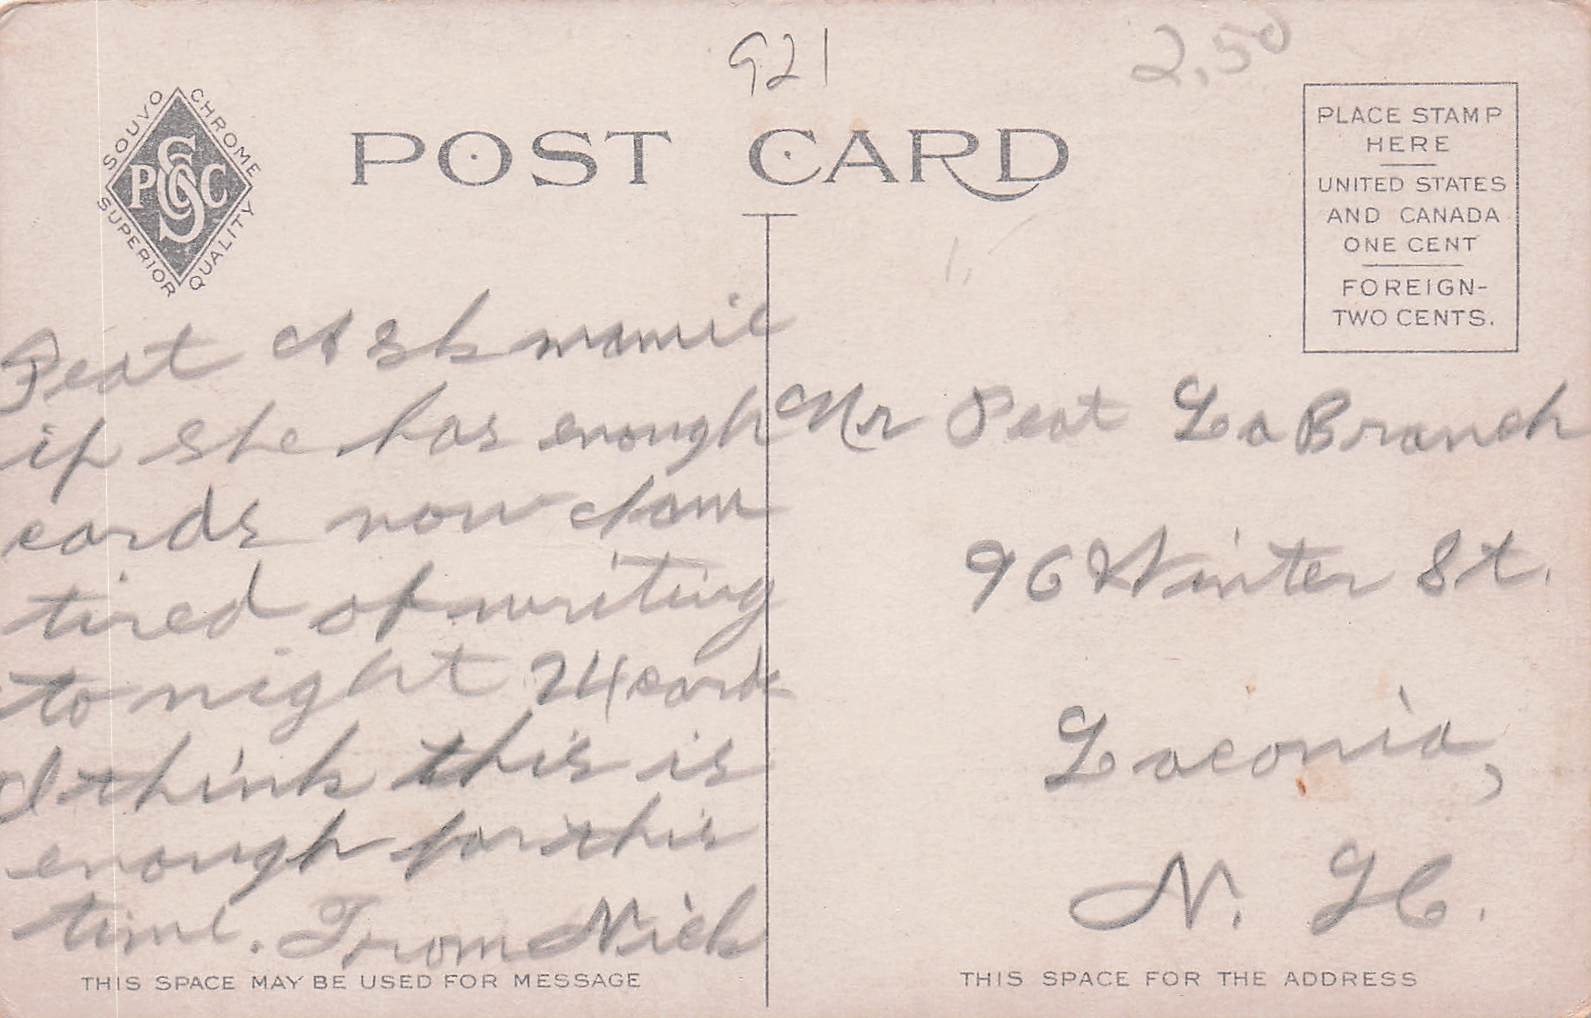 921
2.50
SOUVO CHROME
P S & C
SUPERIOR QUALITY
POST CARD
PLACE STAMP
HERE
UNITED STATES
AND CANADA
ONE CENT
FOREIGN-
TWO CENTS.
Peat Ask mamie
if she has enough
cards now I am
tired of writing
to night 24 cards
I think this is
enough for this
time. From Nick
THIS SPACE MAY BE USED FOR MESSAGE
Mr Peat LaBranch
96 Winter St.
Laconia,
N. H.
THIS SPACE FOR THE ADDRESS